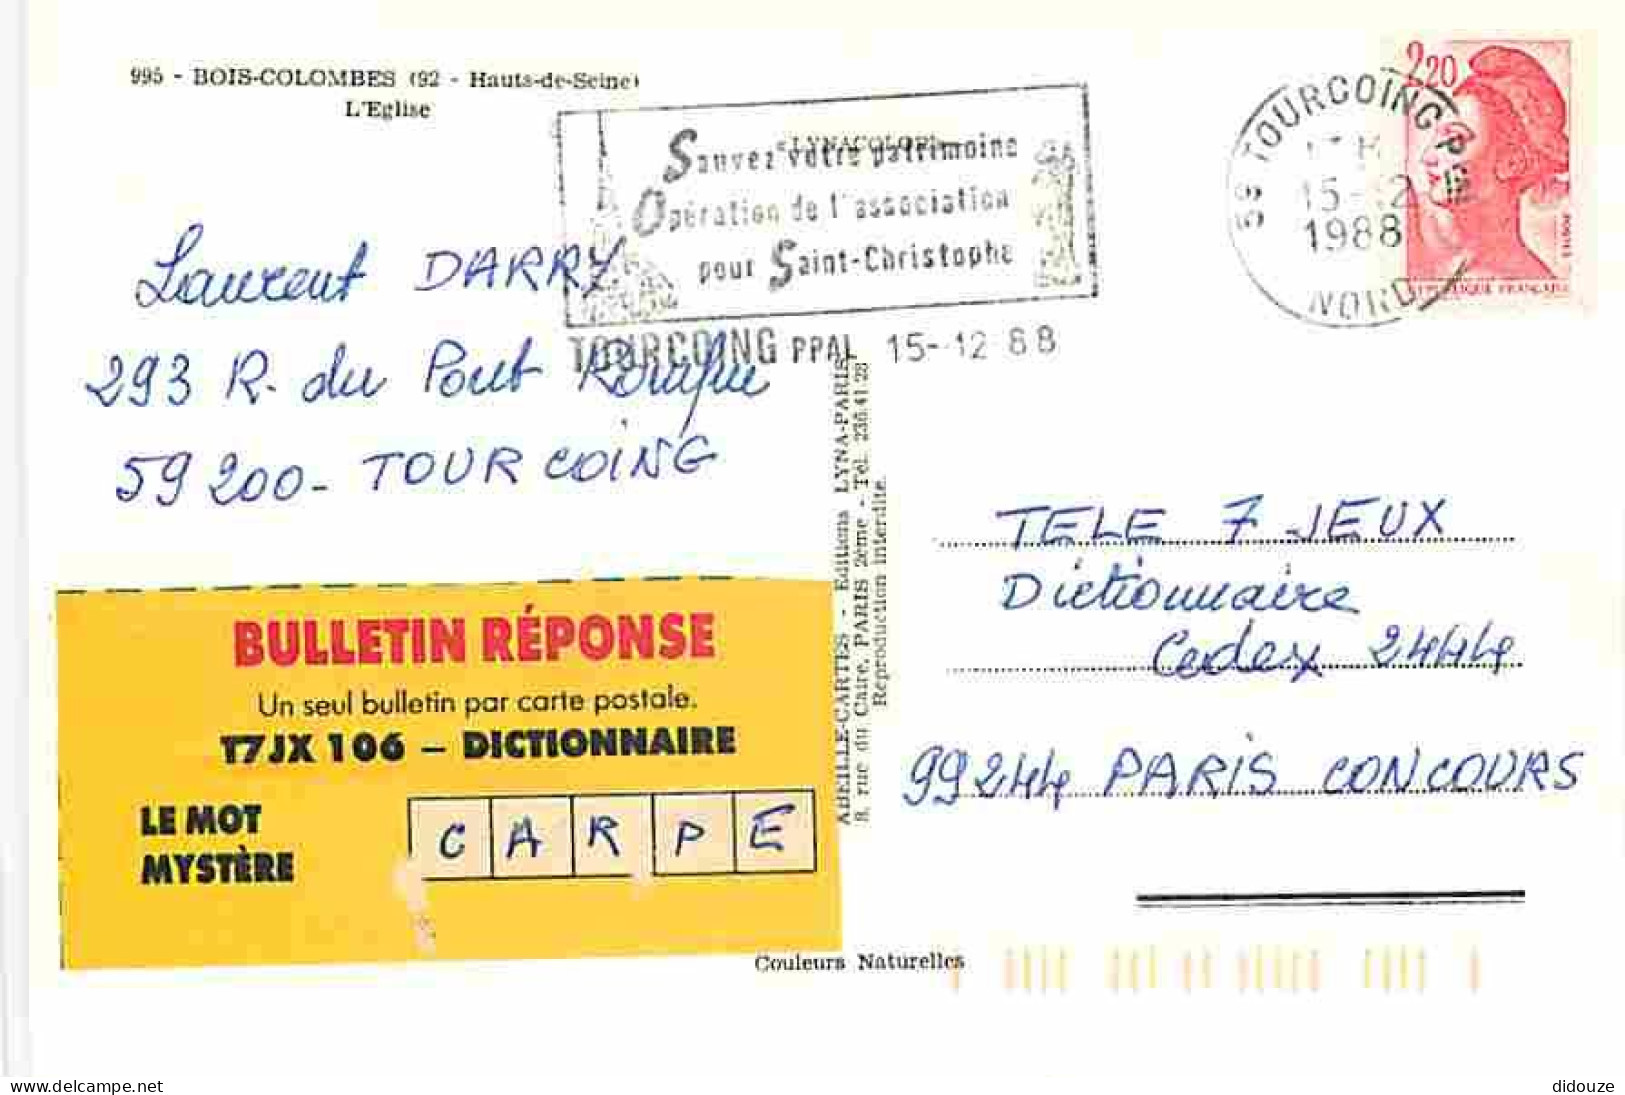 995 - BOIS-COLOMBES (92 - Hauts-de-Seine)
L'Eglise
«LYNACOLOR»
Sauvez votre patrimoine
Opération de l'association
pour Saint-Christophe
TOURCOING PPAL 15-12 88
59 TOURCOING PPAL
15-12
1988
NORD
2,20
REPUBLIQUE FRANÇAISE
Laurent DARRY
293 R. du Pont Rompu
59200 - TOURCOING
ABEILLE-CARTES - Editions LYNA-PARIS
8, rue du Caire, PARIS 2ème - Tél. 236.41.28
Reproduction interdite.
TELE 7 JEUX
Dictionnaire
Cedex 2444
99244 PARIS CONCOURS
BULLETIN RÉPONSE
Un seul bulletin par carte postale.
T7JX 106 – DICTIONNAIRE
LE MOT
MYSTÈRE
C A R P E
Couleurs Naturelles
www.delcampe.net
didouze